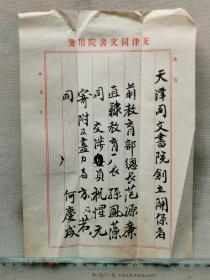 天津同文書院用箋
天津同文書院創立關係者
前教育部總長范源廉
直隸教育　長孫鳳藻
同　交涉員祝惺元
寄附及盡力者方　若
同　何慶成